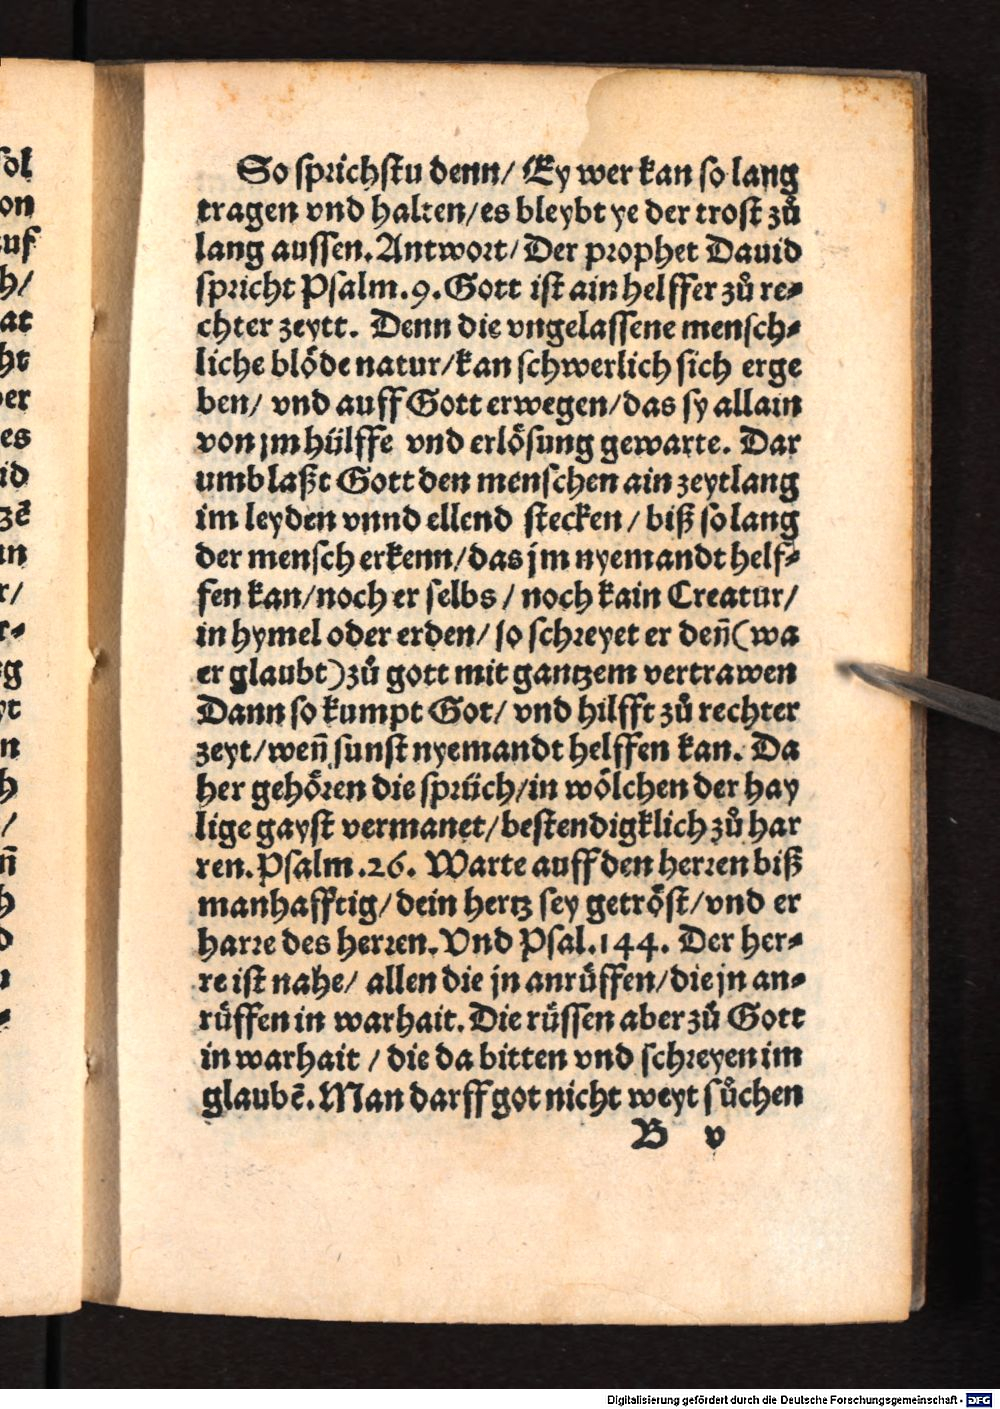 So sprichstu denn/ Ey wer kan so lang
tragen vnd halten/es bleybt ye der trost zů
lang aussen. Antwort/ Der prophet Dauid
spricht Psalm.9. Gott ist ain helffer zů re⸗
chter zeytt. Denn die vngelassene mensch⸗
liche blöde natur/kan schwerlich sich erge
ben/ vnd auff Gott erwegen/das sy allain
von jm hülffe vnd erlösung gewarte. Dar
umb laßt Gott den menschen ain zeytlang
im leyden vnnd ellend stecken/ biß so lang
der mensch erkenn/das jm nyemandt helf⸗
fen kan/noch er selbs/ noch kain Creatur/
in hymel oder erden/ so schreyet er deñ(wa
er glaubt)zů gott mit gantzem vertrawen
Dann so kumpt Got/ vnd hilfft zů rechter
zeyt/weñ sunst nyemandt helffen kan. Da
her gehören die sprüch/in wölchen der hay
lige gayst vermanet/bestendigklich zů har
ren. Psalm.26. Warte auff den herren biß
manhafftig/dein hertz sey getröst/vnd er
harre des herren. Vnd Psal.144. Der her⸗
re ist nahe/ allen die jn anrůffen/die jn an⸗
růffen in warhait. Die růssen aber zů Gott
in warhait/ die da bitten vnd schreyen im
glaubē. Man darff got nicht weyt sůchen
B v
sol
on
uf
h/
at
ht
er
es
id
zē
un
r/
r⸗
g
yt
n
h
/
ñ
h
d
⸗
Digitalisierung gefördert durch die Deutsche Forschungsgemeinschaft - DFG